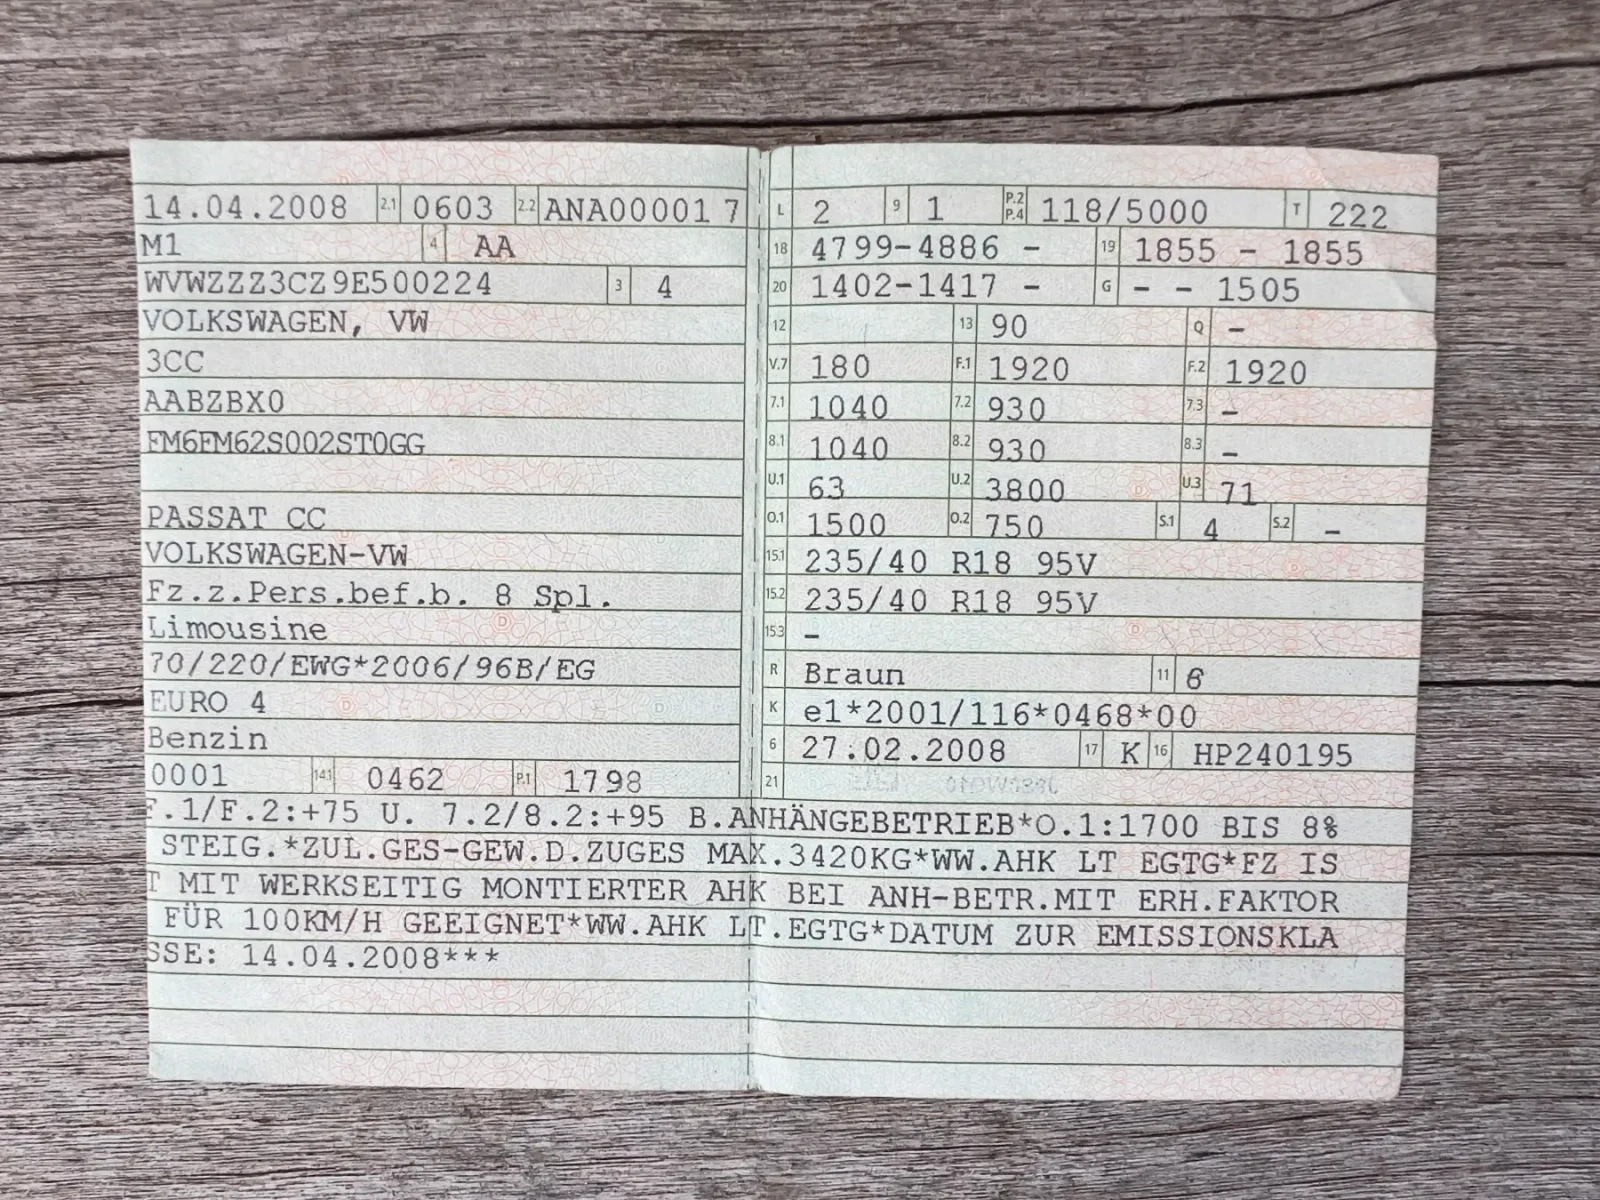 14.04.2008 2.1 0603 2.2 ANA00001 7
M1 4 AA
WVWZZZ3CZ9E500224 3 4
VOLKSWAGEN, VW
3CC
AABZBX0
FM6FM62S002ST0GG
PASSAT CC
VOLKSWAGEN-VW
Fz.z.Pers.bef.b. 8 Spl.
Limousine
70/220/EWG*2006/96B/EG
EURO 4
Benzin
0001 14.1 0462 P.1 1798
L 2 9 1 P.2 P.4 118/5000 T 222
18 4799-4886 - 19 1855 - 1855
20 1402-1417 - G - - 1505
12 13 90 Q -
V.7 180 F.1 1920 F.2 1920
7.1 1040 7.2 930 7.3 -
8.1 1040 8.2 930 8.3 -
U.1 63 U.2 3800 U.3 71
O.1 1500 O.2 750 S.1 4 S.2 -
15.1 235/40 R18 95V
15.2 235/40 R18 95V
15.3 -
R Braun 11 6
K e1*2001/116*0468*00
6 27.02.2008 17 K 16 HP240195
21
F.1/F.2:+75 U. 7.2/8.2:+95 B.ANHÄNGEBETRIEB*O.1:1700 BIS 8%
STEIG.*ZUL.GES-GEW.D.ZUGES MAX.3420KG*WW.AHK LT EGTG*FZ IS
T MIT WERKSEITIG MONTIERTER AHK BEI ANH-BETR.MIT ERH.FAKTOR
FÜR 100KM/H GEEIGNET*WW.AHK LT.EGTG*DATUM ZUR EMISSIONSKLA
SSE: 14.04.2008***